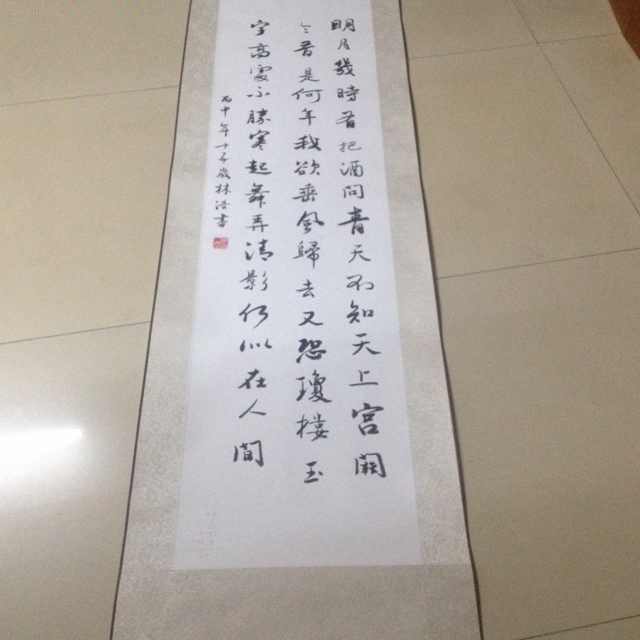 明月幾時有把酒問青天不知天上宮闕
今昔是何年我欲乘風歸去又恐瓊樓玉
宇高處不勝寒起舞弄清影何似在人間
丙申年十歲林書